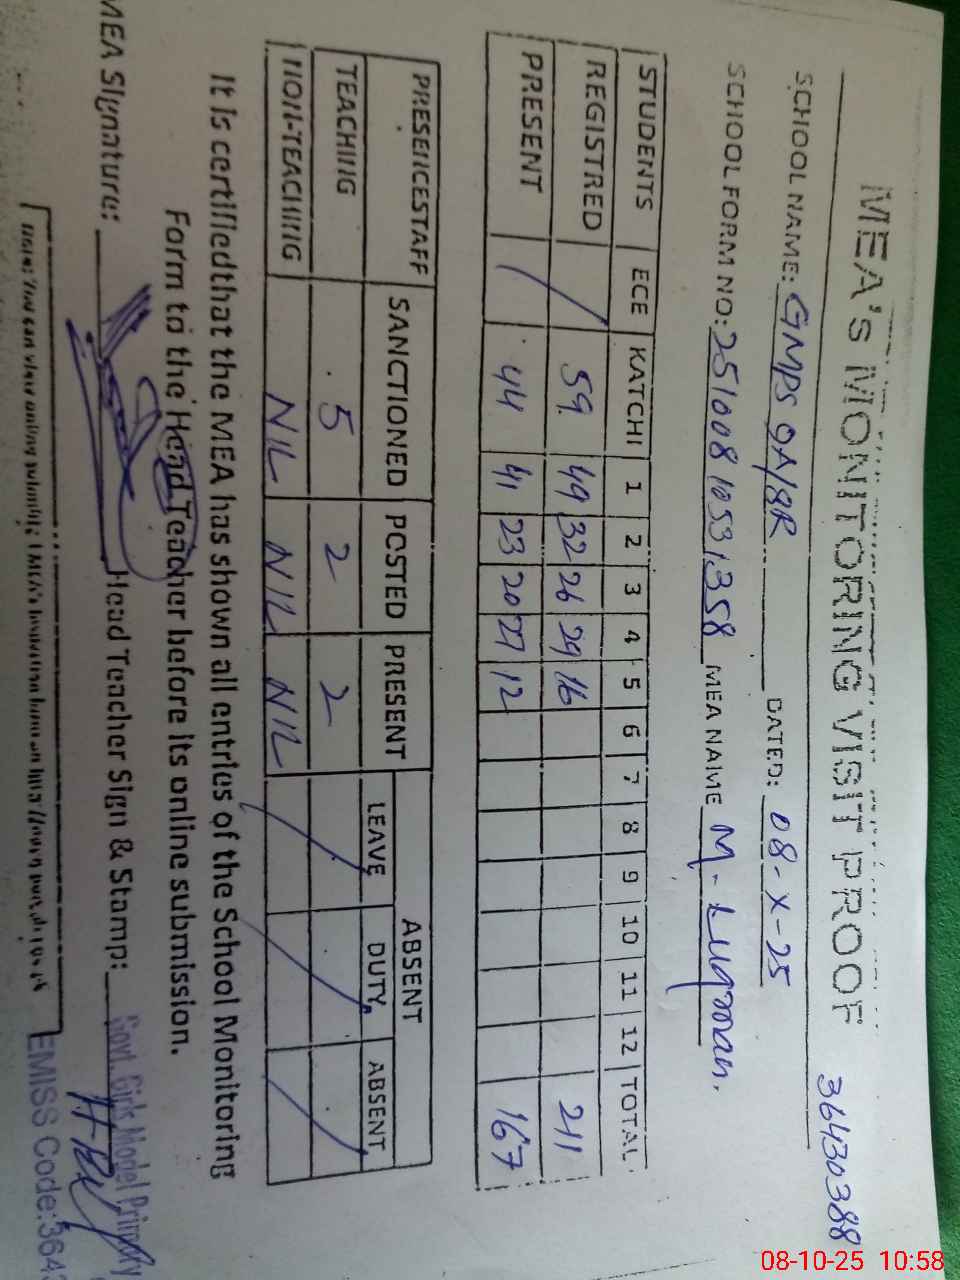 MEA's MONITORING VISIT PROOF 36430388
SCHOOL NAME: GMPS 9A/8R DATED: 08-X-25
SCHOOL FORM NO: 2510081053,358 MEA NAME M. Luqman.
STUDENTS ECE KATCHI 1 2 3 4 5 6 7 8 9 10 11 12 TOTAL
REGISTRED / 59 49 32 26 29 16 211
PRESENT / 44 41 23 20 27 12 167
PRESENCESTAFF SANCTIONED POSTED PRESENT ABSENT
LEAVE DUTY ABSENT
TEACHING 5 2 2
NON-TEACHING NIL NIL NIL
It is certifiedthat the MEA has shown all entries of the School Monitoring
Form to the Head Teacher before its online submission.
MEA Signature: Head Teacher Sign & Stamp:
Govt. Girls Model Primary
EMISS Code:3643
Note: You can view online
08-10-25 10:58